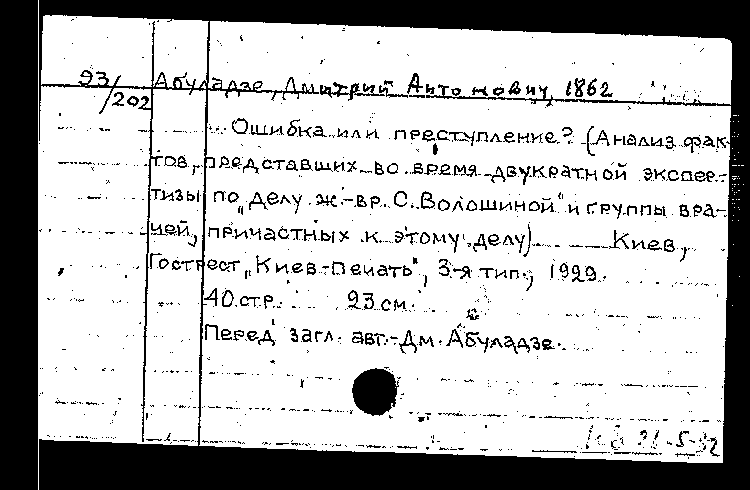 93/202
Абуладзе, Дмитрий Антонович, 1862
Ошибка или преступление? (Анализ фак-
тов, представших во время двукратной экспер-
тизы по „делу ж.-вр. С. Волошиной" и группы вра-
чей, причастных к этому делу) Киев,
Гострест „Киев-Печать", 3-я тип., 1929.
40 стр. 23 см.
Перед загл. авт.-Дм. Абуладзе.